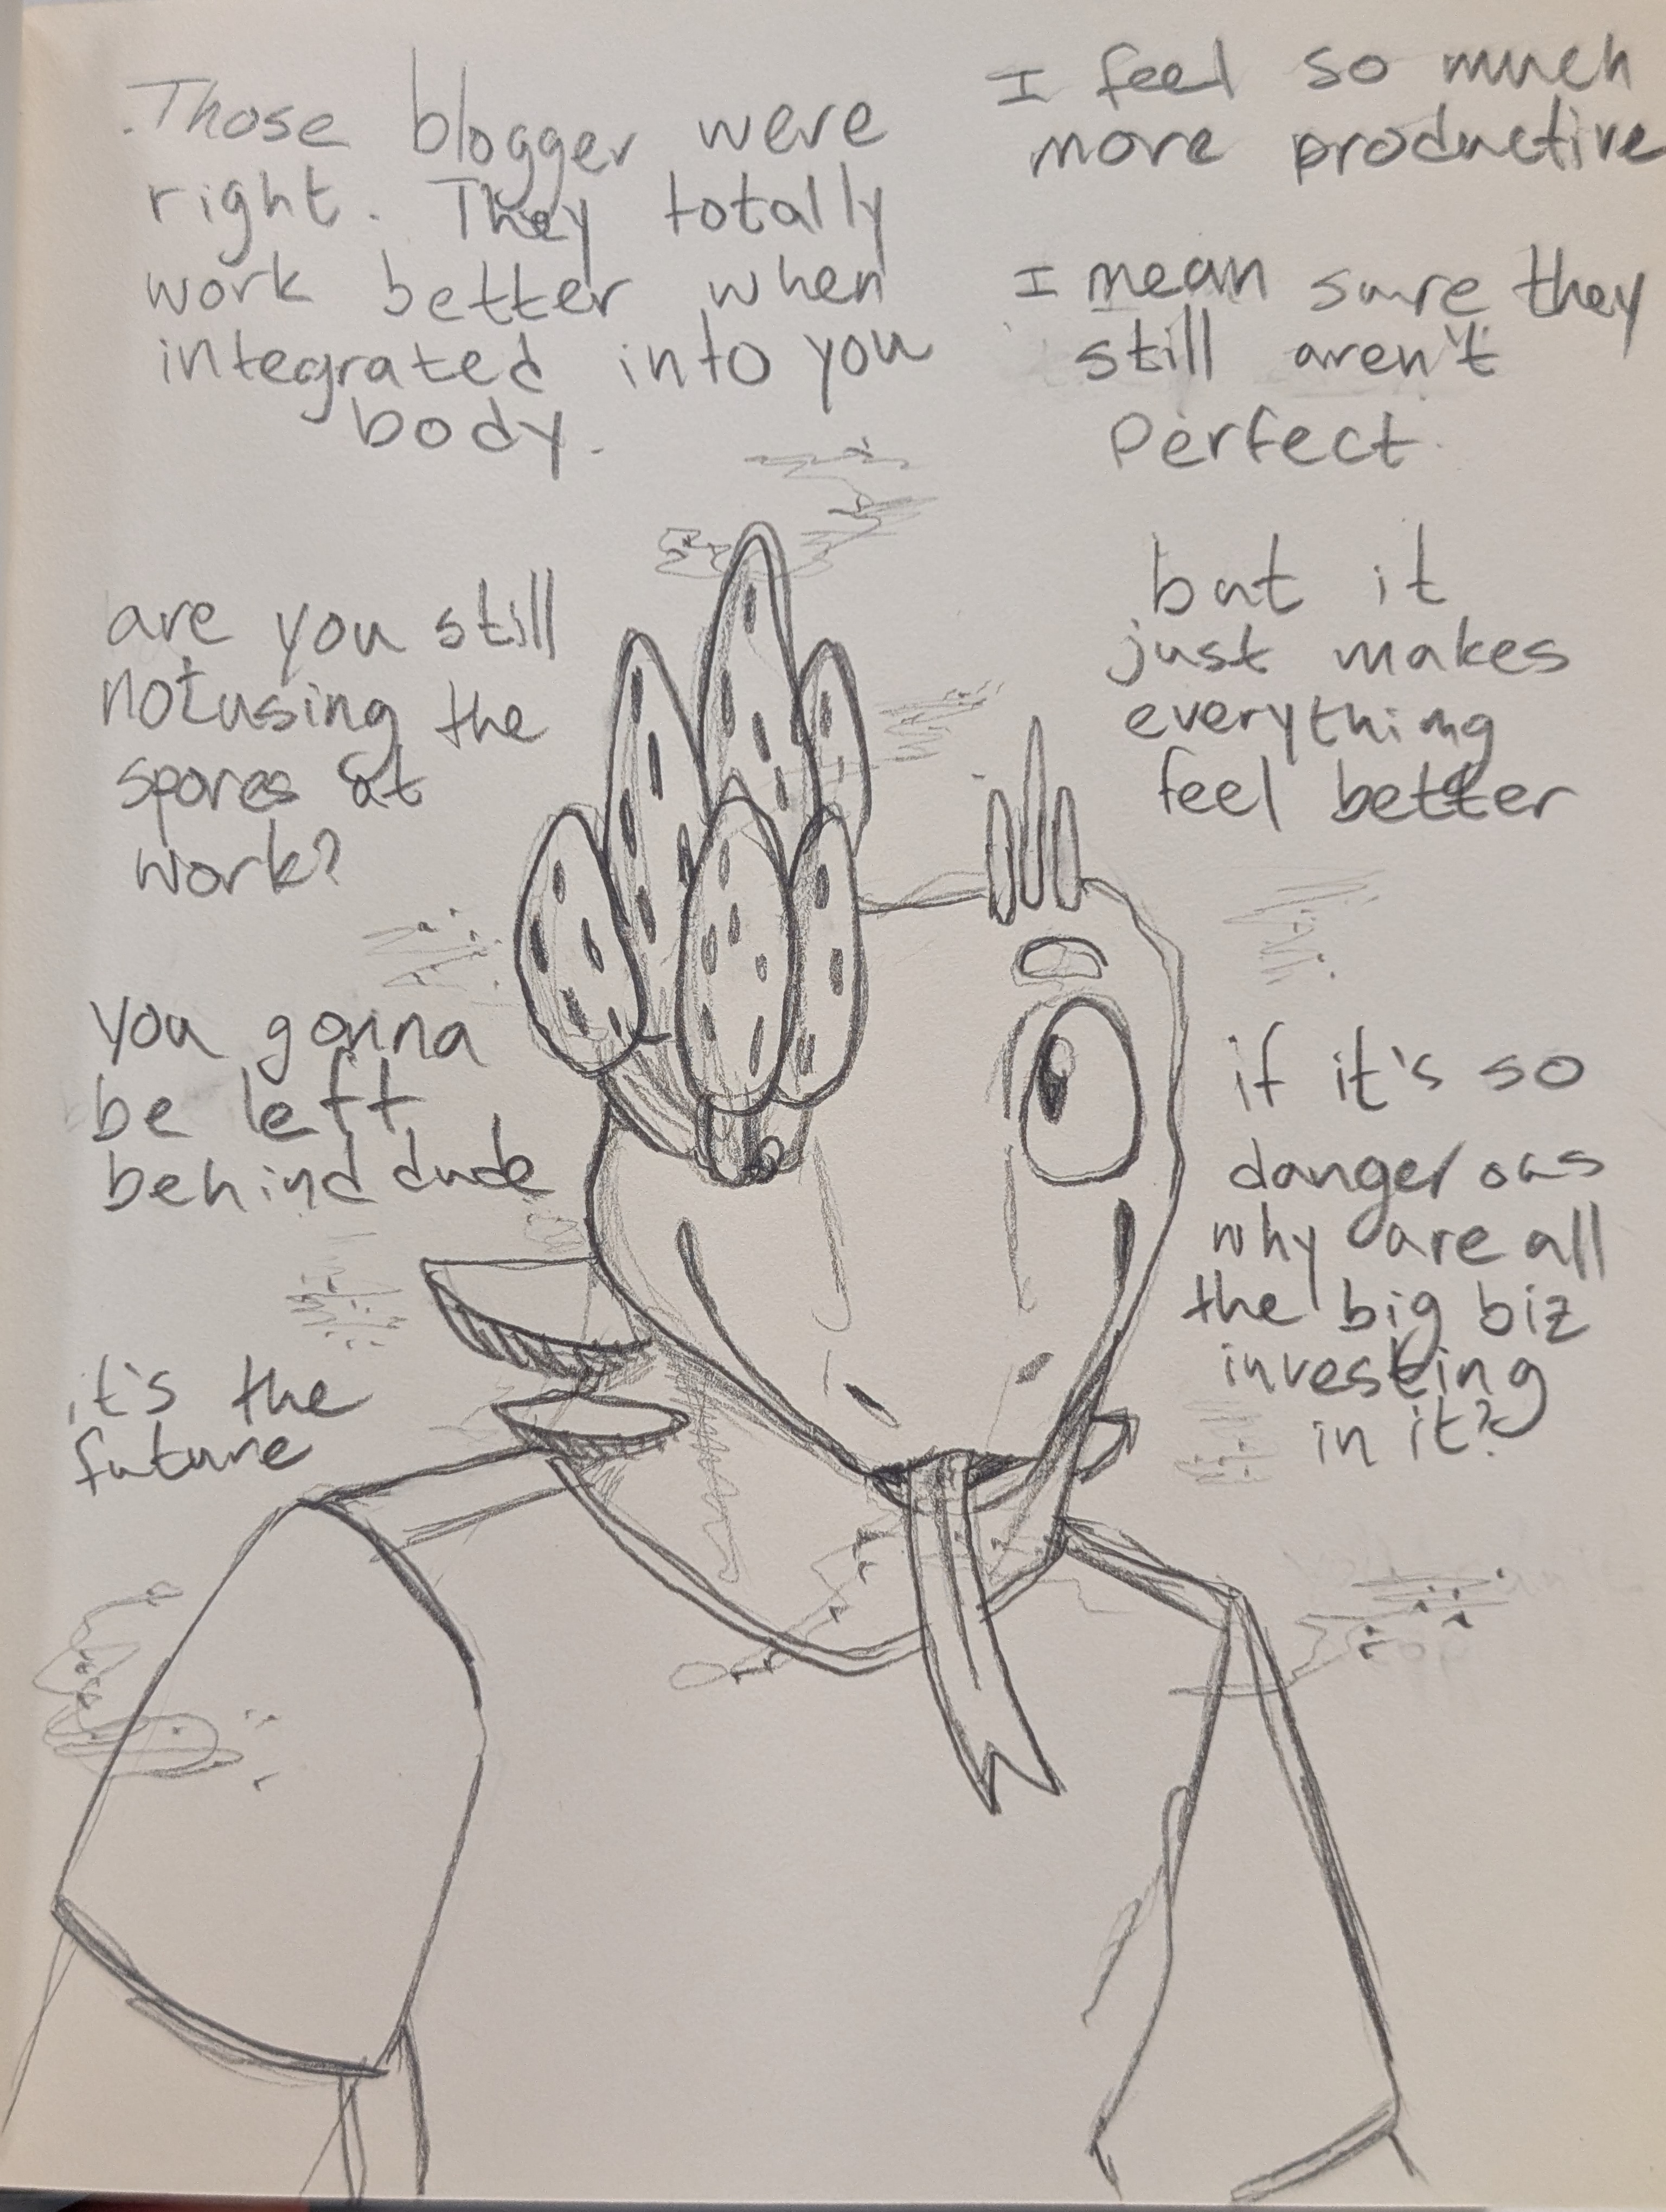 Those blogger were
right. They totally
work better when
integrated into you
body.
I feel so much
more productive
I mean sure they
still aren't
perfect.
but it
just makes
everything
feel better
are you still
not using the
spores at
work?
you gonna
be left
behind dude
it's the
future
if it's so
dangerous
why are all
the big biz
investing
in it?